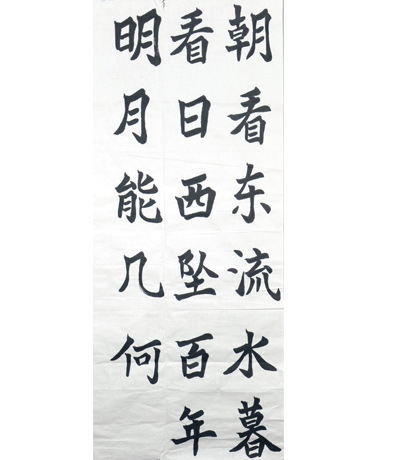 朝看东流水暮
看日西坠百年
明月能几何